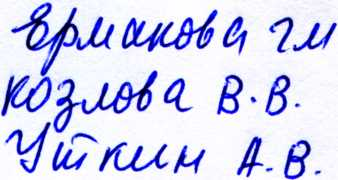 Ермакова гм
Козлова В.В.
Уткин А.В.